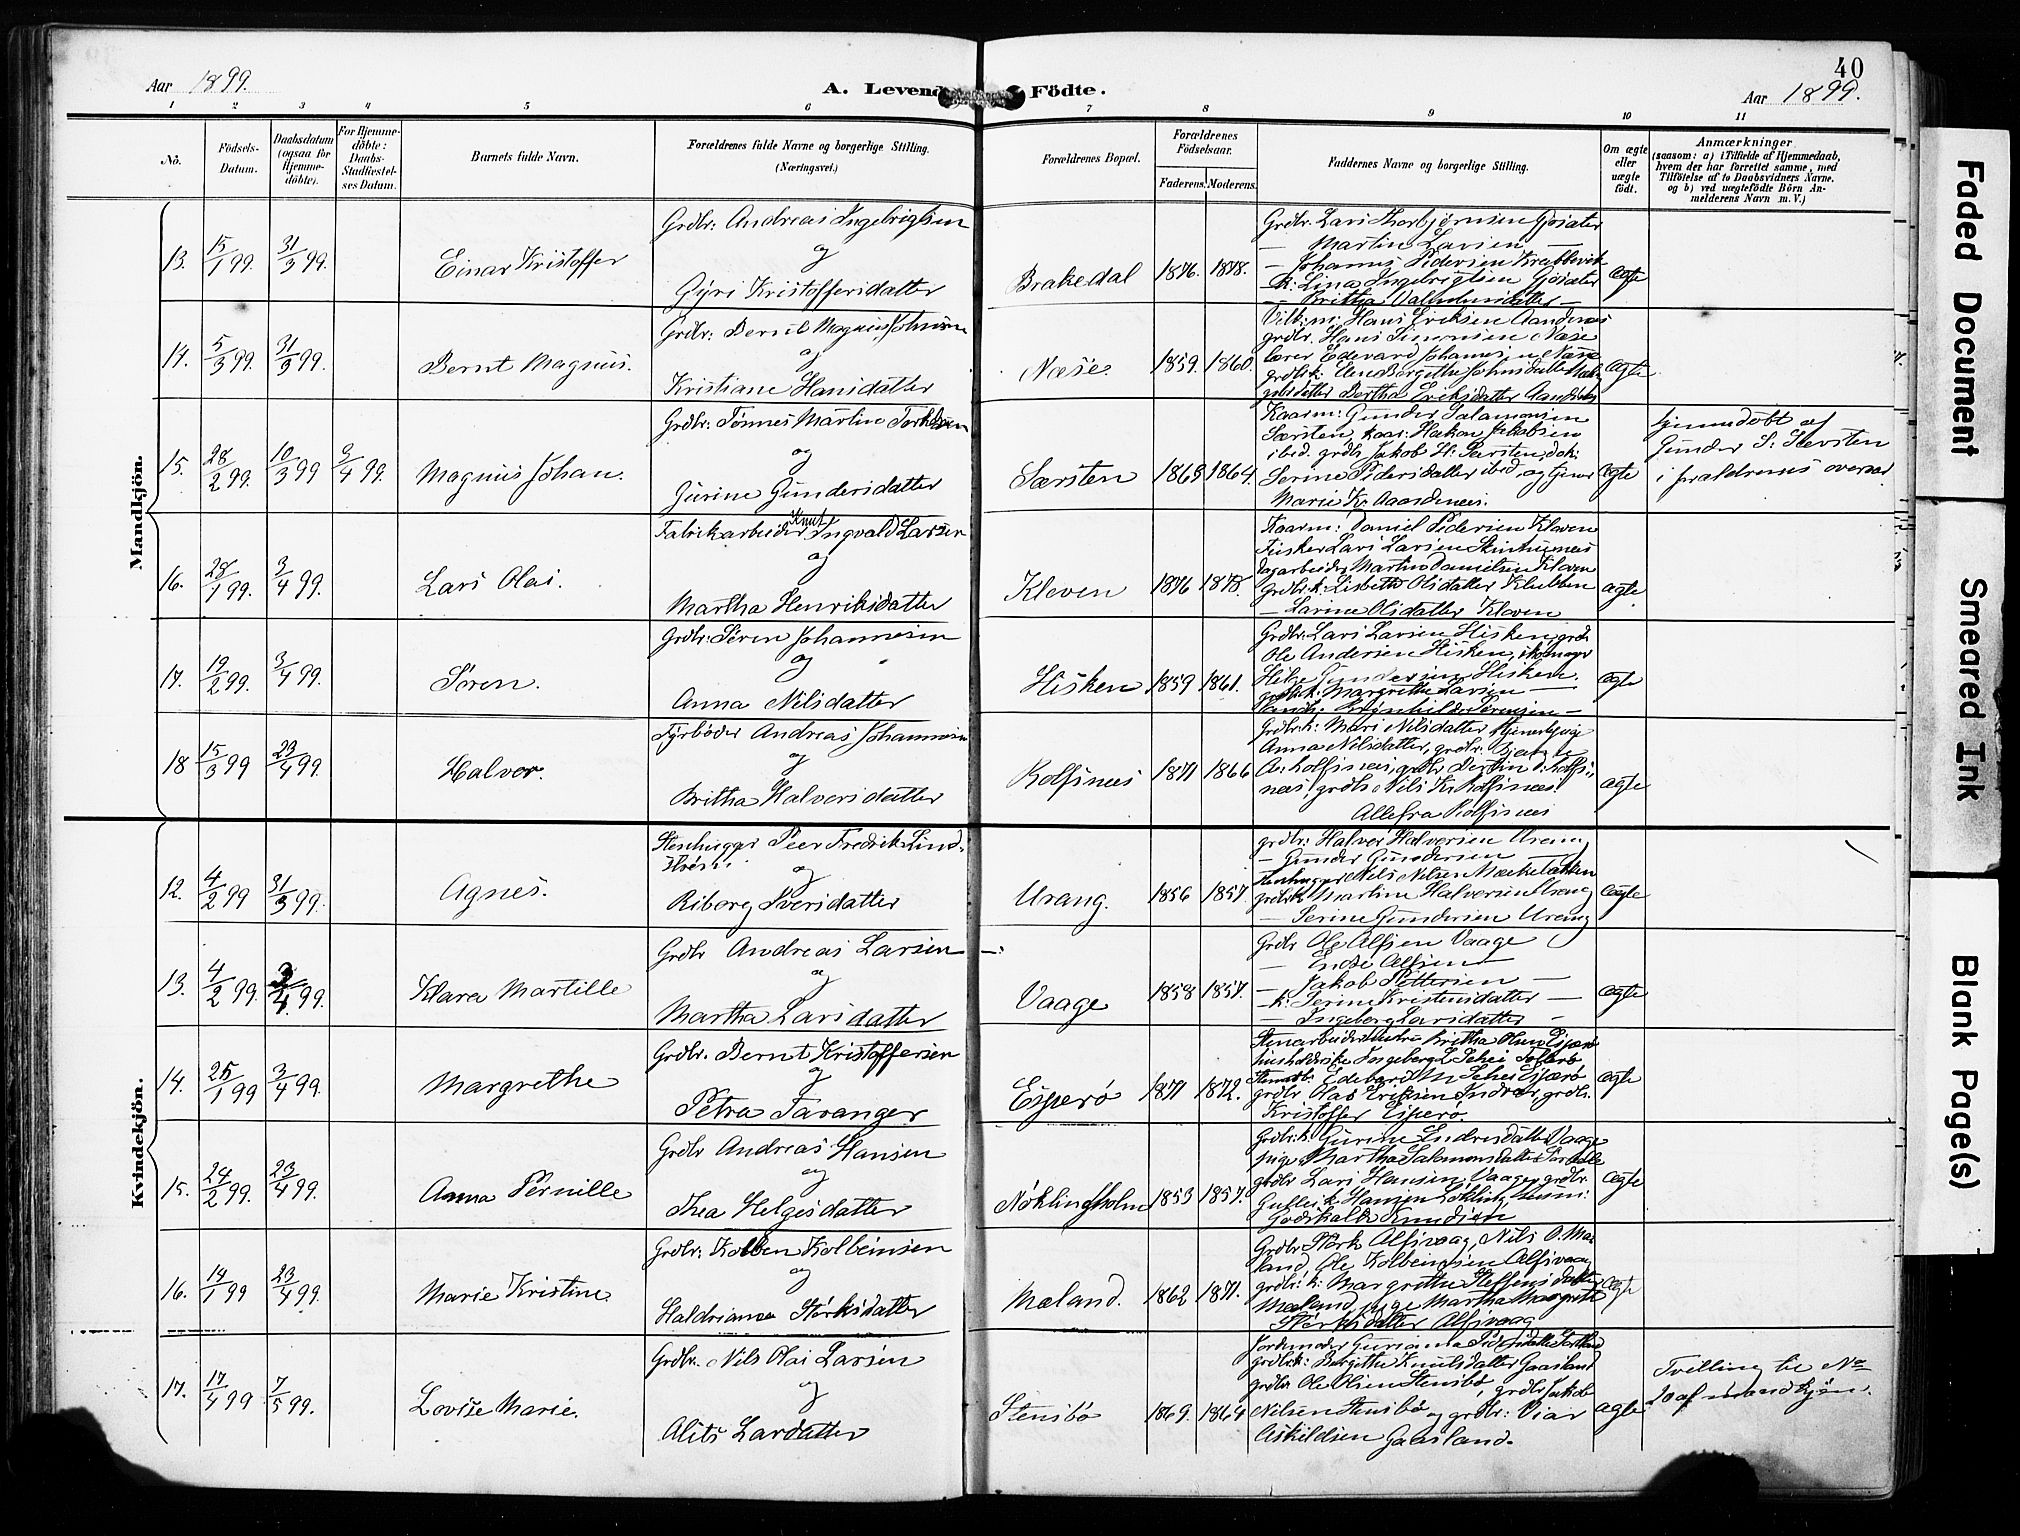 40
Aar 1899.
A. Levende Födte.
Aar 1899.
1 2 3 4 5 6 7 8 9 10 11
No.
Födsels-
Datum.
Daabsdatum
(ogsaa for
Hjemme-
döbte).
For Hjemme-
döbte:
Daabs-
Stadfæstel-
ses Datum.
Barnets fulde Navn.
Forældrenes fulde Navne og borgerlige Stilling.
(Næringsvei.)
Forældrenes Bopæl.
Forældrenes
Födselsaar.
Faderens. Moderens.
Faddernes Navne og borgerlige Stilling.
Om ægte
eller
uægte
födt.
Anmærkninger
(saasom: a) i Tilfælde af Hjemmedaab,
hvem der har forrettet samme, med
Tilföielse af to Daabsvidners Navne.
og b) ved uægtefödte Börn An-
melderens Navn m. V.)
Mandkjön.
13. 15/1 99. 31/3 99. Einar Kristoffer
Grdbr: Andreas Ingebrigtsen
og
Gyri Kristoffersdatter
Brakedal 1876. 1878.
Grdbr. Lars Thorbjørnsen Gjøsater
— Martin Larsen —
— Johannes Pedersen Krabbevik
— k: Lina Ingebrigtsen Gjøsater
— Britha —
ægte
14. 5/3 99. 31/3 99. Bernt Magnus.
Grdbr: Bernt Magnus Johnsen
og
Kristiane Hansdatter
Næse 1859. 1860.
Hans Eriksen Aandnes
grdbr. Hans Simonsen Næse
lærer Edevard Johannesen Næse
Bertha Eriksdatter
ægte
15. 28/2 99. 10/3 99 9/4 99. Magnus Johan.
Grdbr: Tønnes Martin Torkelsen
og
Gurine Gundersdatter
Særsten 1868 1864.
Kaarm: Gunder Salamonsen
Særsten, kaar: Hakon Jakobsen
ibid. grdbr Jakob H. Særsten, dok:
Serine Pedersdatter ibid og tjener
Marie Kr. Aaasdenes.
ægte
hjemmedøbt af
Gunder S. Særsten
i forældrenes overvær
16. 28/1 99. 3/4 99. Lars Olai.
Fabrikarbeider Knut Ingvald Larsen
og
Martha Henriksdatter
Kleven 1876 1878.
Kaarm: Daniel Pedersen Kleven
Fisker Lars Larsen Stenhuenes
Dagarbeider Martin Danielsen Kleven
grdbr. k: Lisbeth Olsdatter Klubben
— Larine Olsdatter Kleven
ægte
17. 19/2 99. 3/4 99. Søren.
Grdbr: Søren Johannesen
og
Anna Nilsdatter
Hisken 1859 1861.
Grdbr: Lars Larsen Hisken, grdbr.
Ole Andersen Hisken, skomager
Helge Gundersen Hisken.
grdbr.k: Margrethe Larsen —
ægte
18 15/3 99 23/4 99. Halvor.
Fyrbøder Andreas Johannesen
og
Britha Halvorsdatter
Rolfsnes 1871 1866
Grdbr.k: Mari Nilsdatter
Anna Nilsdatter, grdbr.
A. Rolfsnes, grdbr
nes, grdbr Nils K. Rolfsnes
Alle fra Rolfsnes
ægte
Kvindekjön.
12. 4/2 99 31/3 99. Agnes.
Stenhugger Peer Fredrik Lind-
og
Riborg Sversdatter
Urang. 1856 1857.
grdbr: Halvor Halvorsen Urang
— Gunder Gundersen
Stenhugger Nils Nilsen
grdbrk Martine Halvorsen Urang
— Serine Gundersen Urang
ægte
13. 4/2 99. 3/4 99. Klara Martille
Grdbr Andreas Larsen
og
Martha Larsdatter
Vaage 1858 1857.
Grdbr Ole Alfsen Vaage
— Endre Alfsen —
— Jakob Pettersen —
— k: Serine Kristensdatter —
— Ingeborg Larsdatter —
ægte
14. 25/1 99 3/4 99. Margrethe
Grdbr. Bernt Kristoffersen
og
Petra Tavanger
Esperø 1871 1872.
Stenarbeider hustru Britha Olsen Esperø
Ingeborg L. Schei
Edevard M. Schei Esperø
grdbr Olai Eriksen Indrør, grdbr.
Kristoffer Esperø.
ægte
15. 24/2 99. 23/4 99. Anna Pernille
Grdbr Andreas Hansen
og
Thea Helgesdatter
Nøklingholm 1853 1857.
Grdbr.k. Gurine Endresdatter Vaage
pige Martha Salmonsdatter
grdbr Lars Hansen Vaage, grdbr.
Gullei k. Hansen
Godskalk Knudsen
ægte
16. 14/1 99 23/4 99. Marie Kristine
Grdbr: Kolben Kolbeinsen
og
Haldriane Størksdatter
Mæland. 1862 1871.
Grdbr Størk Alfsvaag, Nils O. Mæ-
land, Ole Kolbeinsen Alfsvaag
grdbr: k: Margrethe Steffensdatter
Mæland, pige Martha Margrete
Størksdatter Alfsvaag
ægte
17. 17/4 99 7/5 99. Lovise Marie.
Grdbr. Nils Olai Larsen
og
Alits Larsdatter
Stensbø 1869. 1864
Jordemoder Guriane Pedersdatter
grdbr.k: Bergitha Knutsdatter Gaasland
grdbr Ole Olsen Stensbø, grdbr Jakob
Nilsen Stensbø og grdbr: Viar
Askildsen Gaasland.
ægte
Tvilling til No
20 af mandkjön.
Faded Document
Smeared Ink
Blank Page(s)